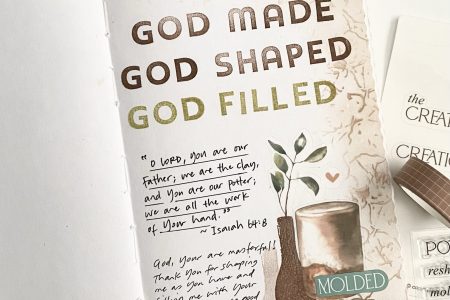 GOD MADE
GOD SHAPED
GOD FILLED
"O LORD, you are our
Father; we are the clay,
and You are our Potter;
we are all the work
of Your hand."
~ Isaiah 64:8
God, your are masterful!
Thank you for shaping
me as you have and
filling me with Your
good
MOLDED
the
CREAT
CREATION
PO
resh
mol